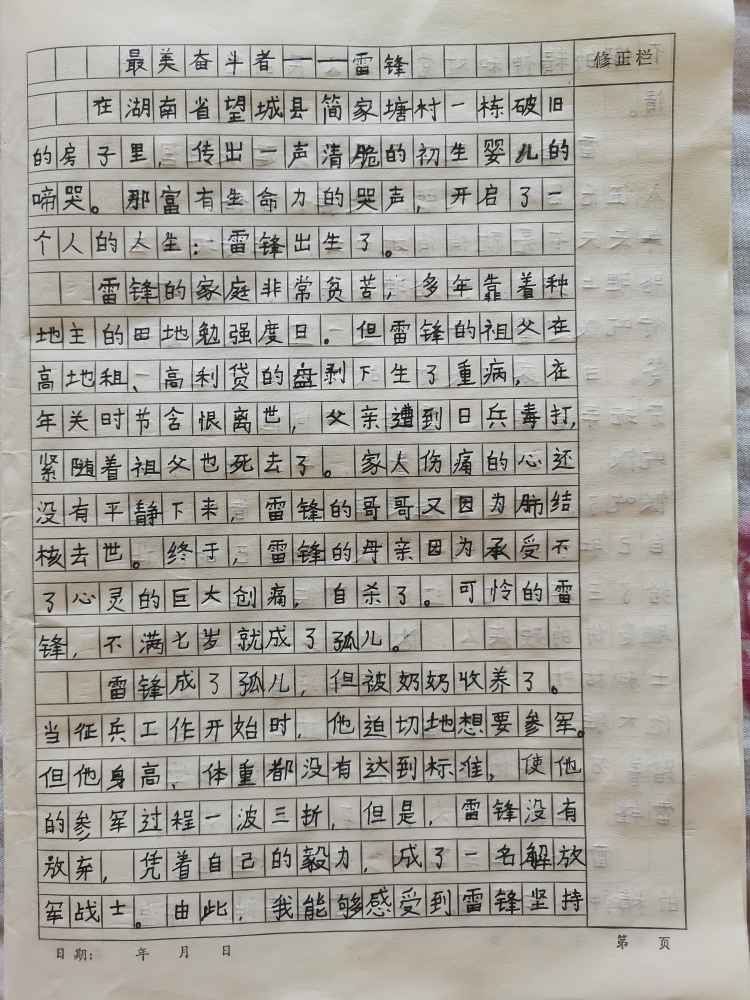 最美奋斗者——雷锋
修正栏
在湖南省望城县简家塘村一栋破旧
的房子里，传出一声清脆的初生婴儿的
啼哭。那富有生命力的哭声，开启了一
个人的人生：雷锋出生了。
雷锋的家庭非常贫苦，多年靠着种
地主的田地勉强度日。但雷锋的祖父在
高地租、高利贷的盘剥下生了重病，在
年关时节含恨离世，父亲遭到日兵毒打，
紧随着祖父也死去了。家人伤痛的心还
没有平静下来，雷锋的哥哥又因为肺结
核去世。终于，雷锋的母亲因为承受不
了心灵的巨大创痛，自杀了。可怜的雷
锋，不满七岁就成了孤儿。
雷锋成了孤儿，但被奶奶收养了。
当征兵工作开始时，他迫切地想要参军。
但他身高、体重都没有达到标准，使他
的参军过程一波三折，但是，雷锋没有
放弃，凭着自己的毅力，成了一名解放
军战士。由此，我能够感受到雷锋坚持
日期： 年 月 日
第 页